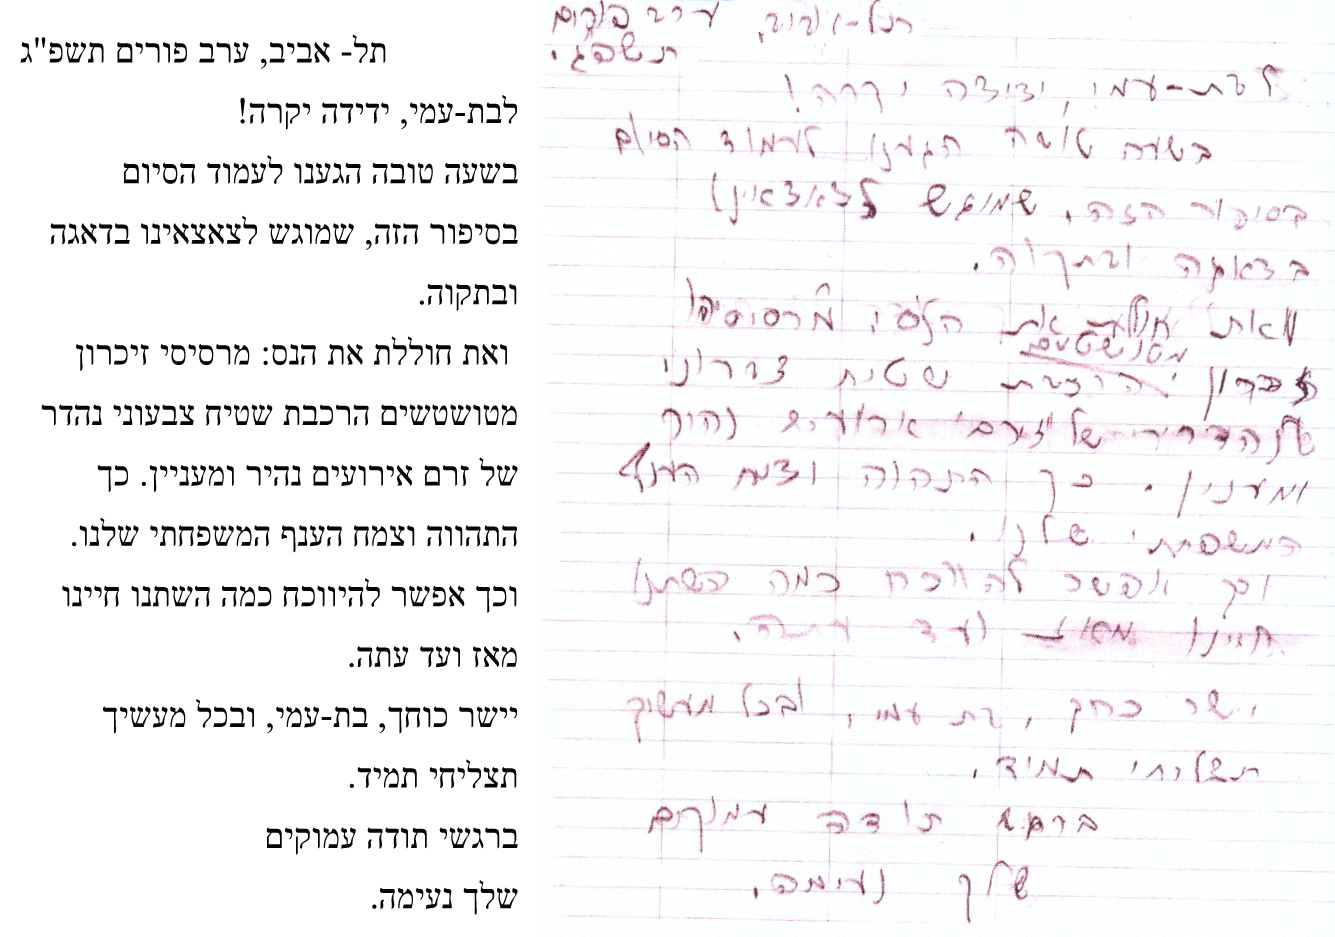 תל- אביב, ערב פורים תשפ"ג
לבת-עמי, ידידה יקרה!
בשעה טובה הגענו לעמוד הסיום
בסיפור הזה, שמוגש לצאצאינו בדאגה
ובתקוה.
ואת חוללת את הנס: מרסיסי זיכרון
מטושטשים הרכבת שטיח צבעוני נהדר
של זרם אירועים נהיר ומעניין. כך
התהווה וצמח הענף המשפחתי שלנו.
וכך אפשר להיווכח כמה השתנו חיינו
מאז ועד עתה.
יישר כוחך, בת-עמי, ובכל מעשיך
תצליחי תמיד.
ברגשי תודה עמוקים
שלך נעימה.
תל-אביב, ערב פורים
תשפג.
לבת-עמי, ידידה יקרה!
בשעה טובה הגענו לעמוד הסיום
בסיפור הזה, שמוגש לצאצאינו
בדאגה ובתקוה.
ואת חוללת את הנס, מרסיסי
מטושטשים
זכרון הרכבת שטיח צבעוני
נהדר של זרם אירועים נהיר
ומענין. כך התהוה וצמח הענף
המשפחתי שלנו.
וכך אפשר להווכח כמה השתנו
חיינו מאז ועד עתה.
ישר כחך, בת עמי, ובכל מעשיך
תצליחי תמיד.
ברגשי תודה עמוקים
שלך נעימה.